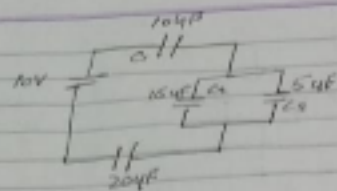 10μF
10V
15μF C2
5μF
C3
20μF